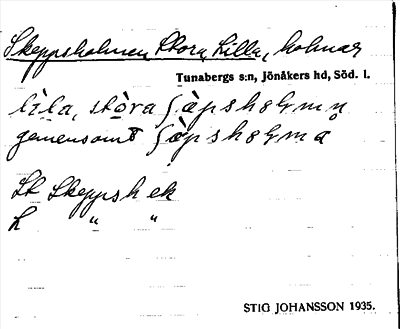 Skeppsholmen, Stora, Lilla, holmar
Tunabergs s:n, Jönåkers hd, Söd. l.
lìla, stòra ʃæ̀pshɷlmn̥
gemensamt ʃæ̀pshɷlma
St Skeppsh ek
L " "
STIG JOHANSSON 1935.